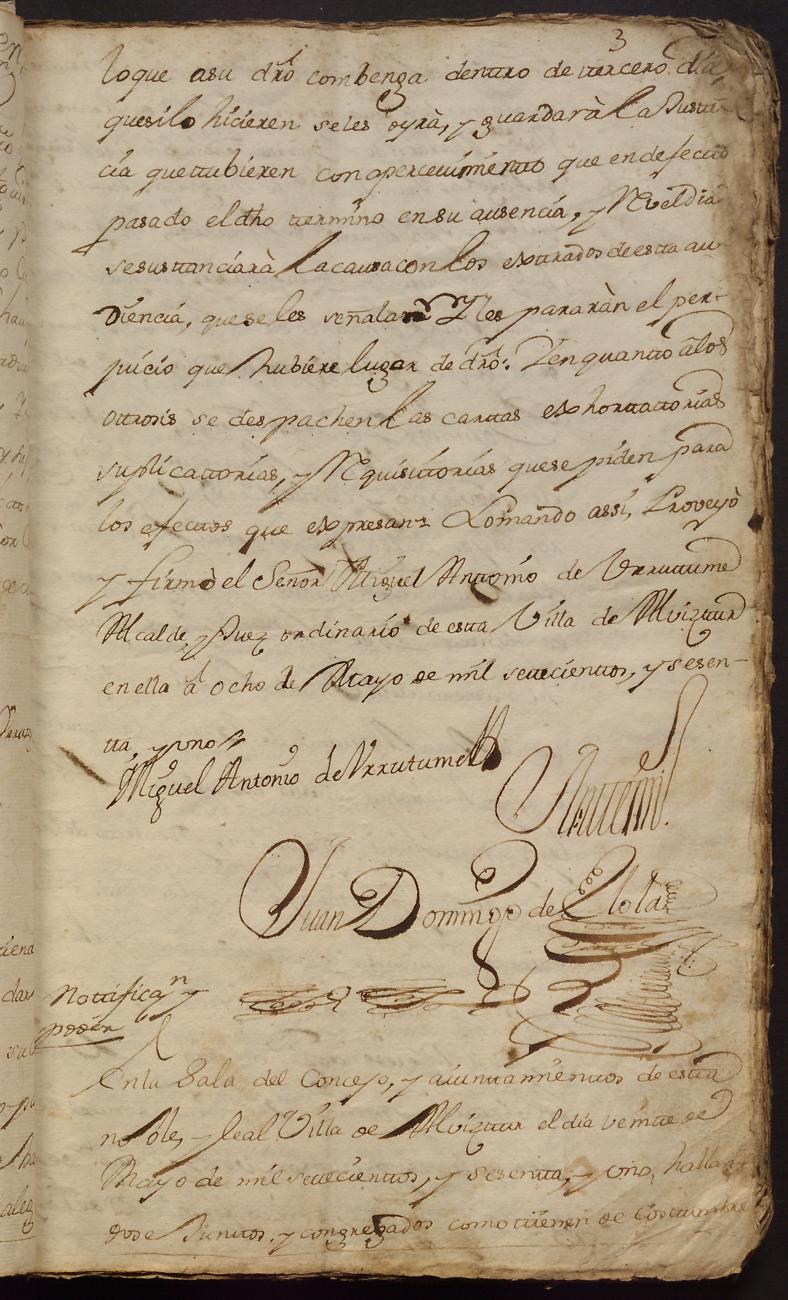 3
loque asu dro combenga dentro de tercero dia,
quesilo hicieren seles oyrà, y guardarà la Justi-
cia quetubieren con apercevimiento que en defecto
pasado el dho termino en su ausencia, y Reveldia
se sustanciarà la causa con los extrados de esta au
diencia, que se les señalan Y les pararàn el per-
juicio que hubiere lugar de dro: Yen quanto àlos
otrosis se despachen las cartas exhortatorias
suplicattorias, y Requisitorias que se piden para
los efectos que expresan Lo mando assi, Proveyò
y firmò el Señor Miguel Antonio de Urrutume
Alcalde, y Juez ordinario de esta Villa de Alviztur
en ella à ocho de Mayo de mil setecientos, y sesen-
tta, y uno
Miguel Antonio de Urrutume
Antemi
Juan Domingo de
Nottificaⁿ y
poder
En la Sala del Concejo, y aiuntamientos de esta
noble, y leal Villa de Alviztur el dia veinte de
Mayo de mil setecientos, y sesenta, y uno, hallan
dose Juntos, y congregados como tienen de costumbre